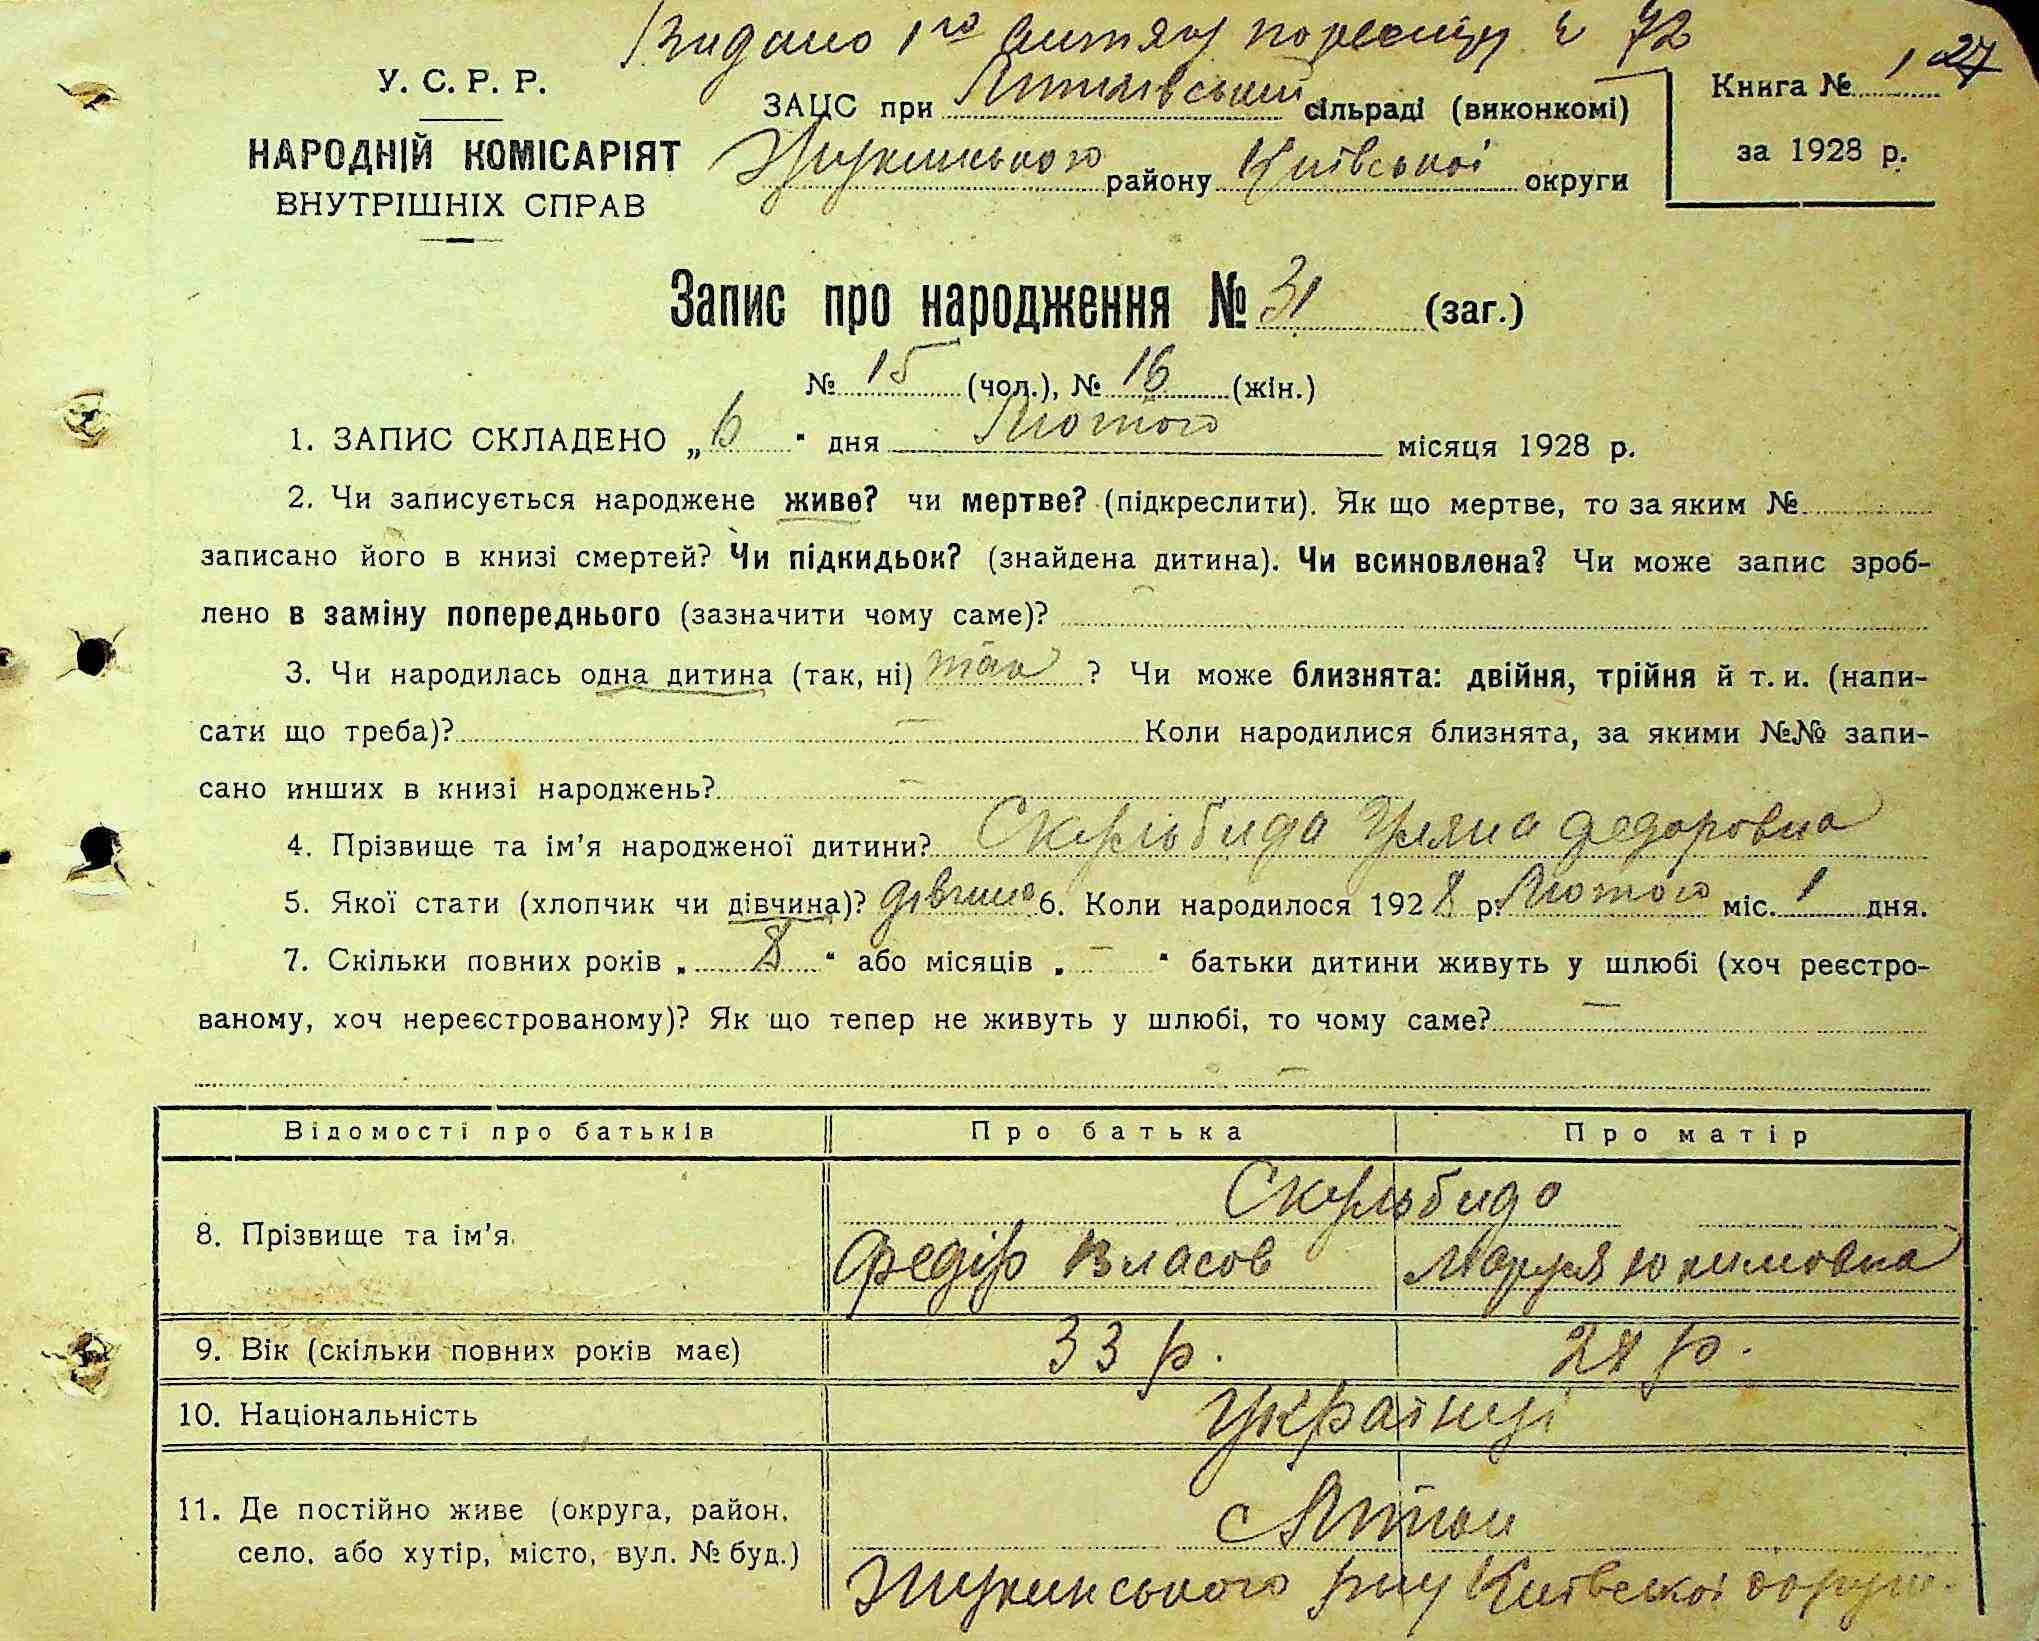 Видано 1го Витяг по реєстру № 72
27
У. С. Р. Р.
НАРОДНІЙ КОМІСАРІЯТ
ВНУТРІШНІХ СПРАВ
ЗАЦС при сільраді (виконкомі)
Жукинського району Київської округи
Книга № 1
за 1928 р.
Запис про народження № 31 (заг.)
№ 15 (чол.), № 16 (жін.)
1. ЗАПИС СКЛАДЕНО „ 6 " дня Лютого місяця 1928 р.
2. Чи записується народжене живе? чи мертве? (підкреслити). Як що мертве, то за яким №
записано його в книзі смертей? Чи підкидьок? (знайдена дитина). Чи всиновлена? Чи може запис зроб-
лено в заміну попереднього (зазначити чому саме)?
3. Чи народилась одна дитина (так, ні) так ? Чи може близнята: двійня, трійня й т. и. (напи-
сати що треба)? — Коли народилися близнята, за якими №№ запи-
сано инших в книзі народжень? —
4. Прізвище та ім'я народженої дитини? Скульбида Уляна Федоровна
5. Якої стати (хлопчик чи дівчина)? дівчина 6. Коли народилося 1928 р. Лютого міс. 1 дня.
7. Скільки повних років „ 8 " або місяців „ — " батьки дитини живуть у шлюбі (хоч реєстро-
ваному, хоч нереєстрованому)? Як що тепер не живуть у шлюбі, то чому саме? —
—
Відомості про батьків Про батька Про матір
8. Прізвище та ім'я. Скульбида
Федір Власов Маруся Юхимовна
9. Вік (скільки повних років має) 33 р. 28 р.
10. Національність Українці
11. Де постійно живе (округа, район,
село, або хутір, місто, вул. № буд.)
с.
Жукинського р-ну Київської округи